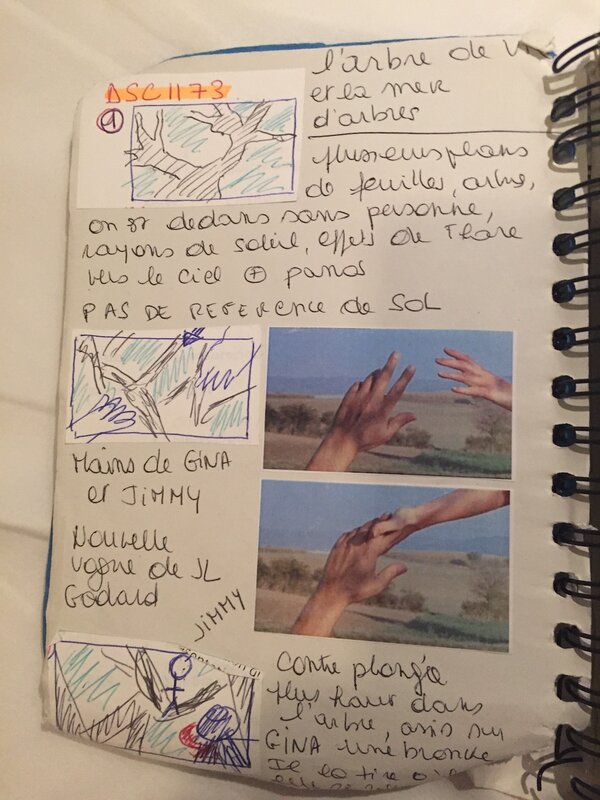 DSC1173
1
l'arbre de
et la mer
d'arbres
plusieurs plans
de feuilles, arbre,
on est dedans sans personne,
rayons de soleil, effets de Flare
vers le ciel + panos
PAS DE REFERENCE de SOL
Mains de GINA
et JIMMY
Nouvelle
vague de JL
Godard
JIMMY
contre plongée
plus haut dans
l'arbre, assis sur
GINA une branche
Il la tire